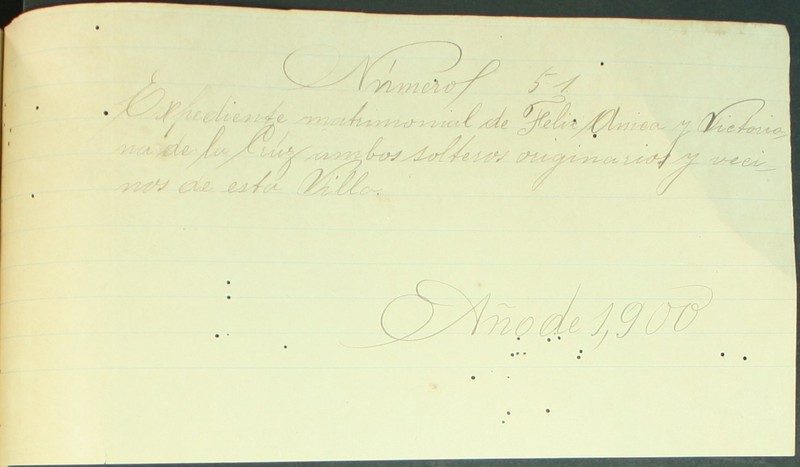 Número 51.
Expediente matrimonial de Feliz Amica y Victoria-
na de la Crúz ambos solteros originarios y veci-
nos de esta Villa.
Año de 1,900